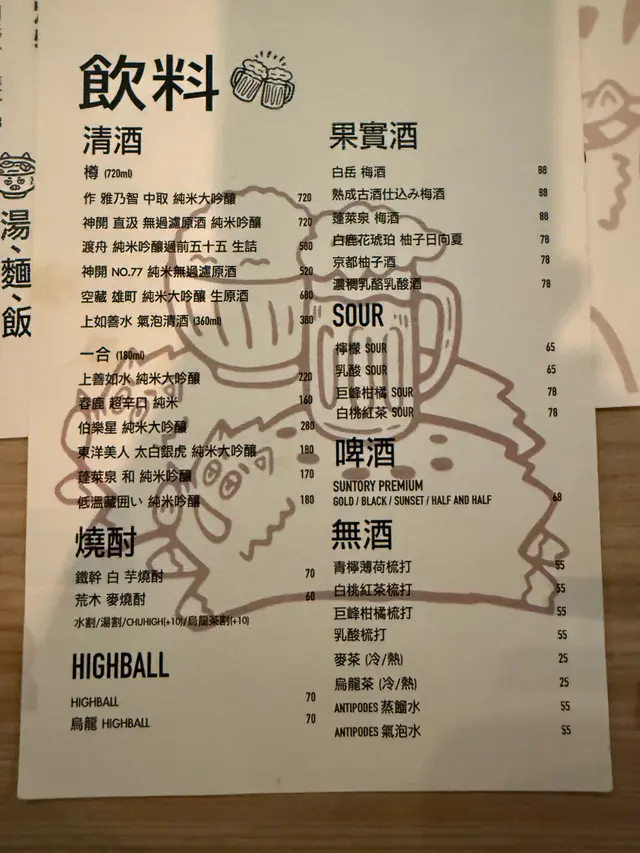 飲料
清酒
樽 (720ml)
作 雅乃智 中取 純米大吟釀 720
神開 直汲 無過濾原酒 純米吟釀 720
渡舟 純米吟釀過前五十五 生詰 580
神開 NO.77 純米無過濾原酒 520
空藏 雄町 純米大吟釀 生原酒 680
上如善水 氣泡清酒 (360ml) 380
一合 (180ml)
上善如水 純米大吟釀 220
春鹿 超辛口 純米 160
伯樂星 純米大吟釀 280
東洋美人 太白銀虎 純米大吟釀 180
蓬萊泉 和 純米吟釀 170
低溫藏囲い 純米吟釀 180
燒酎
鐵幹 白 芋燒酎 70
荒木 麥燒酎 60
水割/湯割/CHUHIGH(+10)/烏龍茶割(+10)
HIGHBALL
HIGHBALL 70
烏龍 HIGHBALL 70
果實酒
白岳 梅酒 88
熟成古酒仕込み梅酒 88
蓬萊泉 梅酒 88
白鹿花琥珀 柚子日向夏 78
京都柚子酒 78
濃稠乳酪乳酸酒 78
SOUR
檸檬 SOUR 65
乳酸 SOUR 65
巨峰柑橘 SOUR 78
白桃紅茶 SOUR 78
啤酒
SUNTORY PREMIUM
GOLD / BLACK / SUNSET / HALF AND HALF 68
無酒
青檸薄荷梳打 55
白桃紅茶梳打 55
巨峰柑橘梳打 55
乳酸梳打 55
麥茶 (冷/熱) 25
烏龍茶 (冷/熱) 25
ANTIPODES 蒸餾水 55
ANTIPODES 氣泡水 55
湯、麵、飯